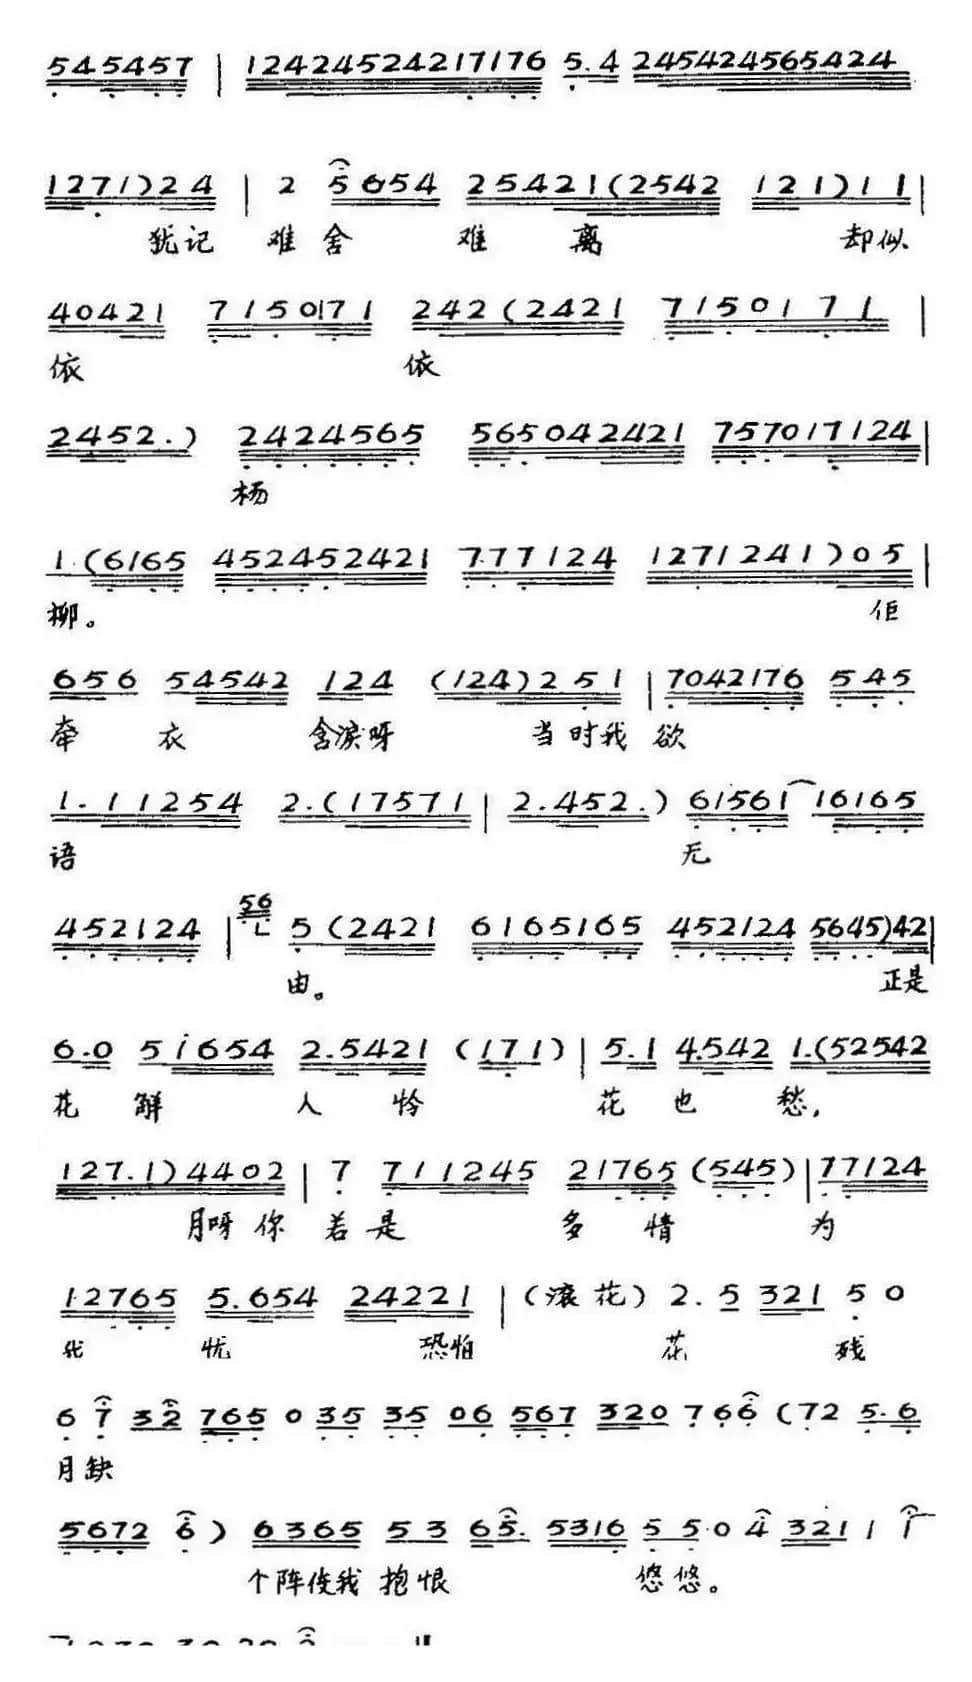 545457 | 12424524217176 5.4 245424565424
1271)24 | 2 5654 25421(2542 121)11|
犹记 难舍 难 离 却似
40421 7150171 242(2421 7150171|
依 依
2452.) 2424565 565042421 757017124|
杨
1.(6165 452452421 777124 1271241)05|
柳。 佢
656 54542 124 (124)251 |7042176 545
牵 衣 含泪呀 当时我 欲
1.11254 2.(17571 | 2.452.) 61561 16165
语 无
452124 | 56 5(2421 6165165 452124 5645)42|
由。 正是
6.0 51654 2.5421 (171) | 5.1 4.542 1.(52542
花 解 人 怜 花 也 愁,
127.1)4402 | 7 711245 21765 (545) | 77124
月呀你 若是 多 情 为
12765 5.654 24221 | (滚花) 2.5 321 50
我 忧 恐怕 花 残
67 32 765 0 35 35 06 567 320 766 (72 5.6
月缺
5672 6) 6365 53 65. 5316 5 5.0 4 321 1 1
个阵使我 抱恨 悠悠。